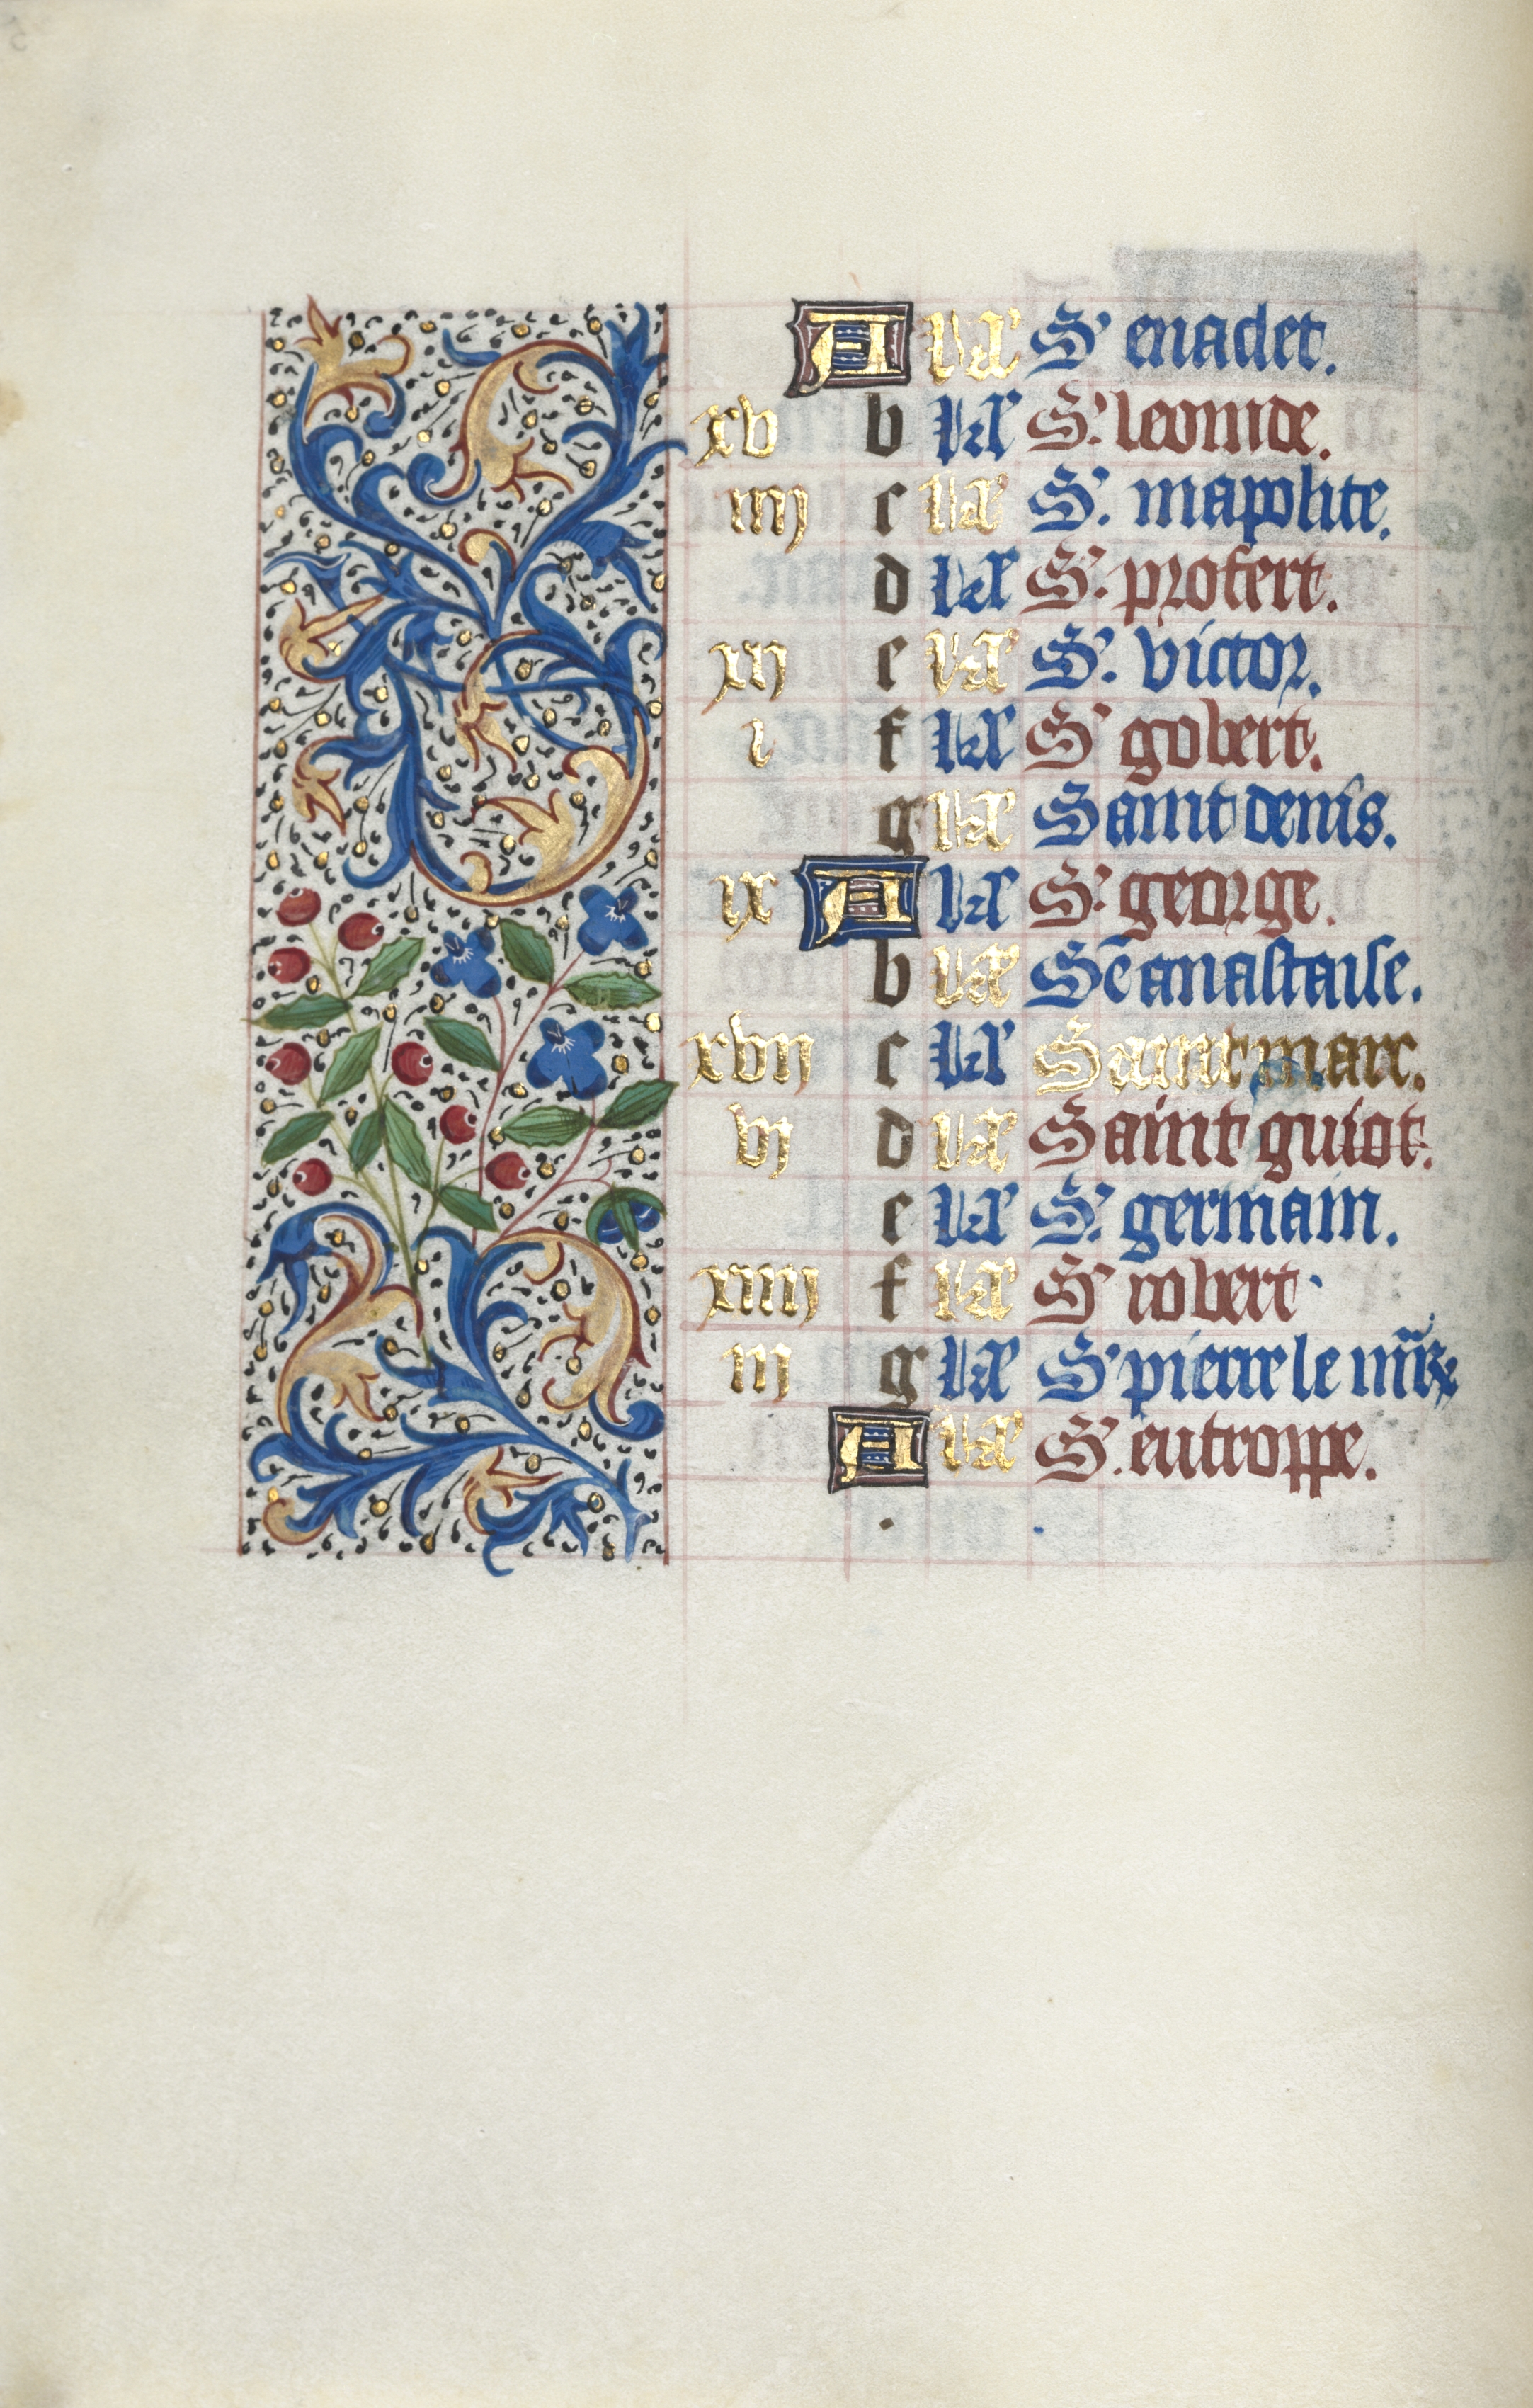 A kł S' enadet.
xv b kł S'. leonide.
iiij c kł S'. mapolite.
d kł S'. profert.
xij e kł S'. victor.
i f kł S' gobert.
g kł Saint denis.
ix A kł S' george.
b kł Sē anastaise.
xvii c kł Saint marc.
vj d kł Saint guiot.
e kł S'. germain.
xiiij f kł S' robert.
iii g kł S' pierre le
A kł S'. eutroppe.